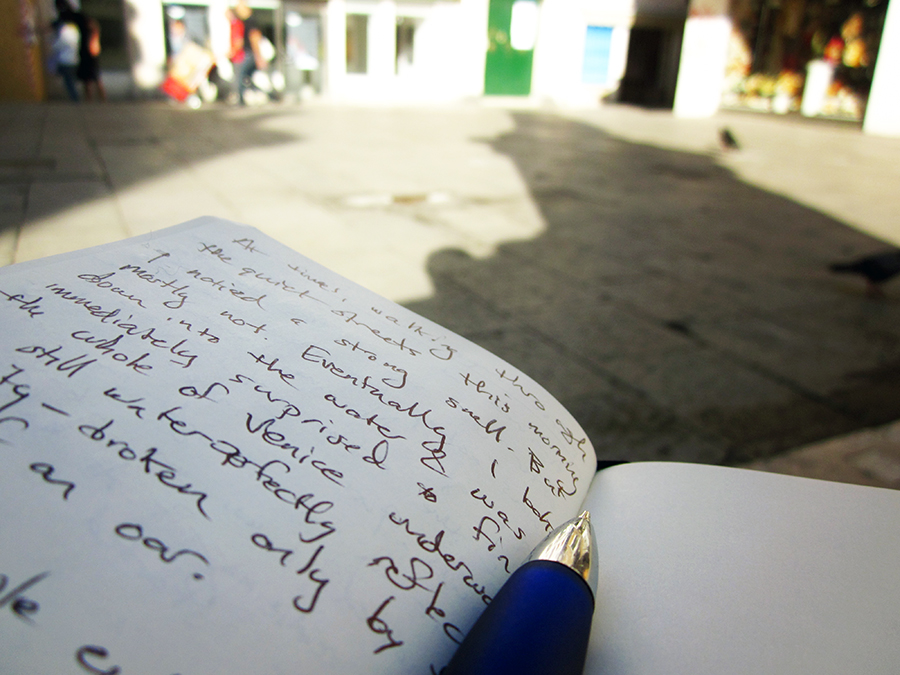 At times, walking through
the quiet streets this morning
I noticed a stong smell. But
mostly not. Eventually I
down into the water & was
immediately surprised to fin
the whole of Venice underwa
still water perfectly reflec
ty — broken only by
an oar.